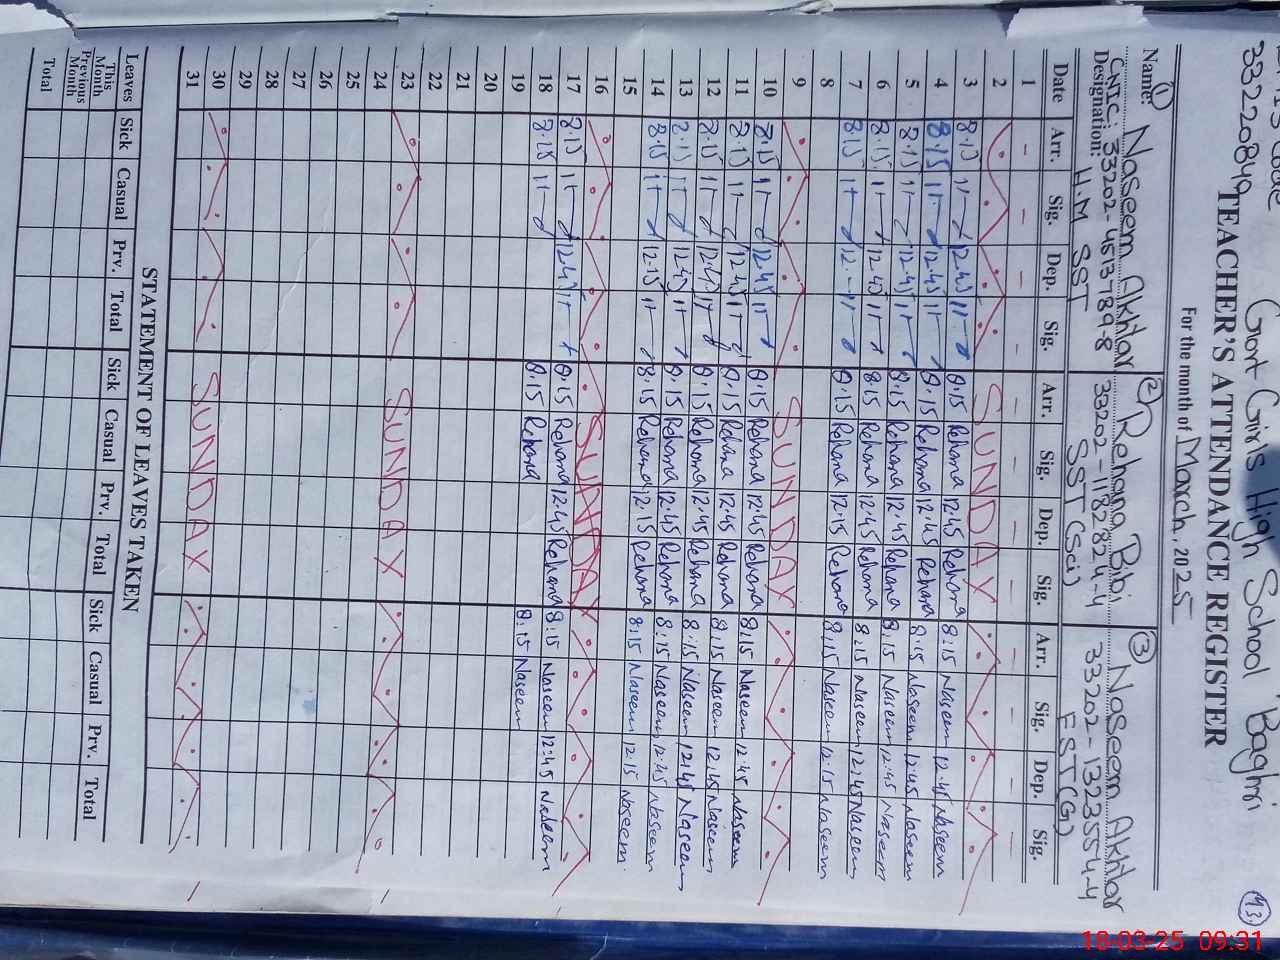 Govt Girls High School Baghri
33220849
M3
TEACHER'S ATTENDANCE REGISTER
For the month of March, 2025
Name: ① Naseem Akhtar ② Rehana Bibi ③ Naseem Akhtar
CNIC: 33202-4513789-8 33202-1182824-4 33202-1323554-4
Designation: H.M SST SST (Sci) EST (G)
Date Arr. Sig. Dep. Sig. Arr. Sig. Dep. Sig. Arr. Sig. Dep. Sig.
1 – – – – – – – – – – – –
2 SUNDAY
3 8.15 12.45 8.15 Rehana 12.45 Rehana 8:15 Naseem 12.45 Naseem
4 8.15 12.45 8.15 Rehana 12.45 Rehana 8.15 Naseem 12.45 Naseem
5 8.15 12.45 8.15 Rehana 12.45 Rehana 8.15 Naseem 12.45 Naseem
6 8.15 12.45 8.15 Rehana 12.45 Rehana 8:15 Naseem 12:45 Naseem
7 8.15 8.15 Rehana 12.15 Rehana 8:15 Naseem 12.15 Naseem
8
9 SUNDAY
10 8.15 12.45 8.15 Rehana 12.45 Rehana 8:15 Naseem 12.45 Naseem
11 8.15 12.45 8.15 Rehana 12.45 Rehana 8:15 Naseem 12.45 Naseem
12 8.15 12.45 8.15 Rehana 12.45 Rehana 8:15 Naseem 12.45 Naseem
13 8.15 12.45 8.15 Rehana 12.45 Rehana 8:15 Naseem 12.45 Naseem
14 8.15 12.15 8.15 Rehana 12.15 Rehana 8:15 Naseem 12.15 Naseem
15
16 SUNDAY
17 8.15 12.45 8.15 Rehana 12.45 Rehana 8:15 Naseem 12:45 Naseem
18 8.15 8.15 Rehana 8:15 Naseem
19
20
21
22
23 SUNDAY
24
25
26
27
28
29
30 SUNDAY
31
STATEMENT OF LEAVES TAKEN
Leaves Sick Casual Prv. Total Sick Casual Prv. Total Sick Casual Prv. Total
This Month
Previous Month
Total
18-03-25 09:31